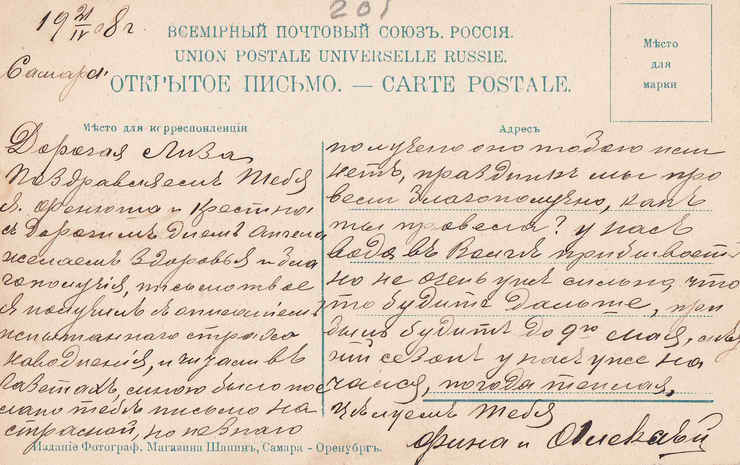 201
19 21/IV 08 г
Самара
ВСЕМIРНЫЙ ПОЧТОВЫЙ СОЮЗЪ. РОССIЯ.
UNION POSTALE UNIVERSELLE RUSSIE.
ОТКРЫТОЕ ПИСЬМО. — CARTE POSTALE.
Мѣсто
для
марки
Мѣсто для корреспонденціи
Дорогая Лиза
Поздравляемъ Тебя
я. Фенюша и крестная
съ Дорогимъ Днемъ Ангела
желаемъ здоровья и бла
гополучiя, письмо твое
я получилъ съ описанiемъ
испытаннаго страха
наводненiя, и читали въ
газетахъ, мною было пос
лано тебѣ письмо на
страсной, но незнаю
Адресъ
получено оно тобою или
нетъ, праздникъ мы про
вели благополучно, какъ
ты провела? у насъ
вода въ Волгѣ прибываетъ
но не очень ужъ сильно, что
то будитъ дальше, при
быль будитъ до 9го мая,
сезонъ у насъ уже на
чался, погода теплая,
Цѣлуемъ Тебя
и
Изданіе Фотограф. Магазина Шапиръ, Самара - Оренубргъ.